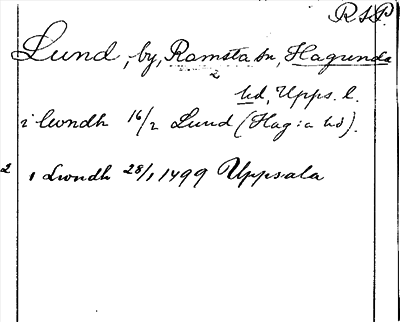 RSP.
Lund, by, Ramsta sn, Hagunda
2
hd, Upps. l.
i Lwondh 16/2 Lund (Hag:a hd).
2 i Lwndh 28/1 1499 Uppsala